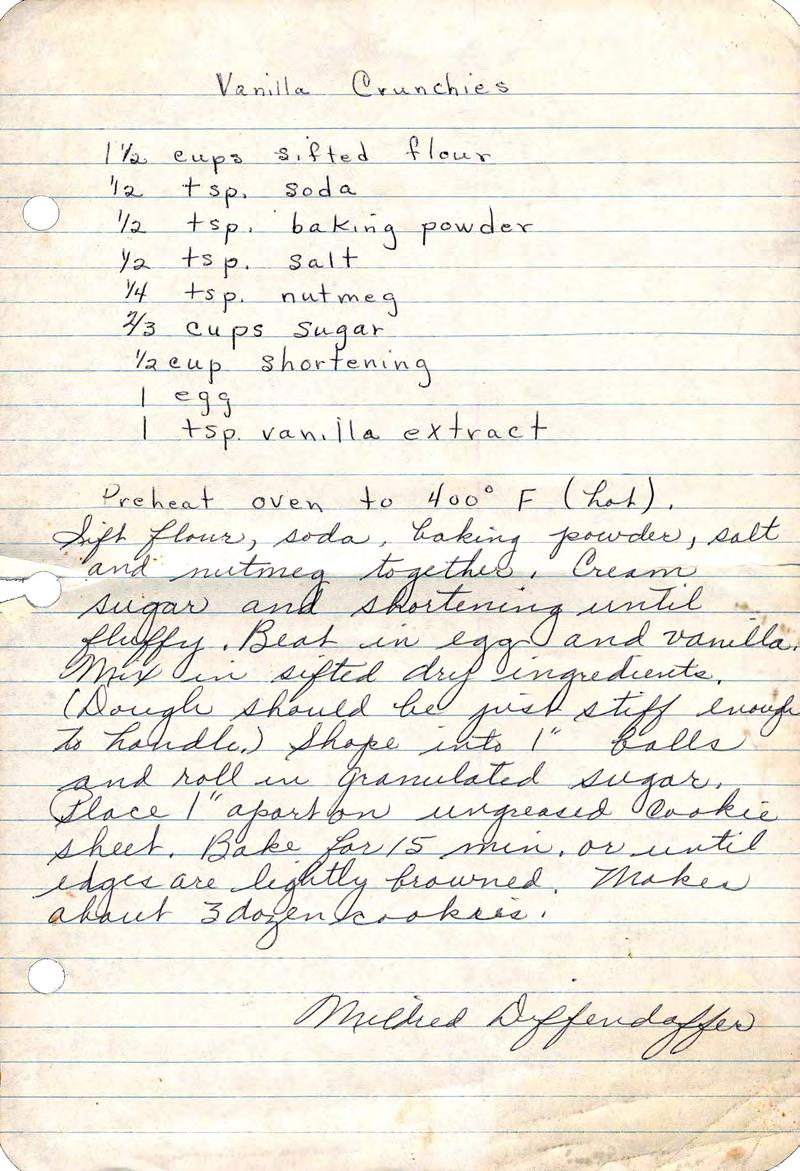 Vanilla Crunchies
1 1/2 cups sifted flour
1/2 tsp. soda
1/2 tsp. baking powder
1/2 tsp. salt
1/4 tsp. nutmeg
2/3 cups sugar
1/2 cup shortening
1 egg
1 tsp. vanilla extract
Preheat oven to 400° F (hot).
Sift flour, soda, baking powder, salt
and nutmeg together. Cream
sugar and shortening until
fluffy. Beat in egg and vanilla.
Mix in sifted dry ingredients.
(Dough should be just stiff enough
to handle.) Shape into 1" balls
and roll in granulated sugar.
Place 1" apart on ungreased cookie
sheet. Bake for 15 min. or until
edges are lightly browned. Makes
about 3 dozen cookies.
Mildred Diffendaffer